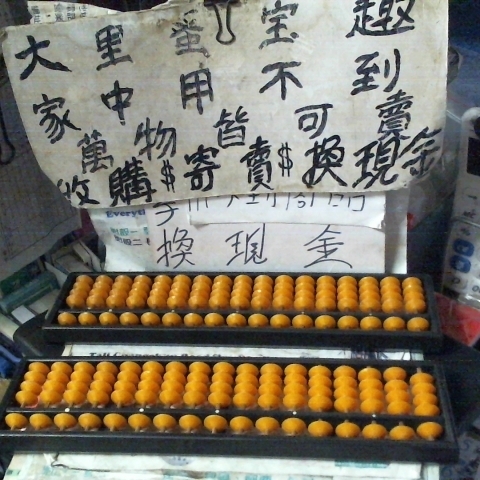 大里宝趣
家中用不到
萬物皆可賣
收購$寄賣$換現金
換現金